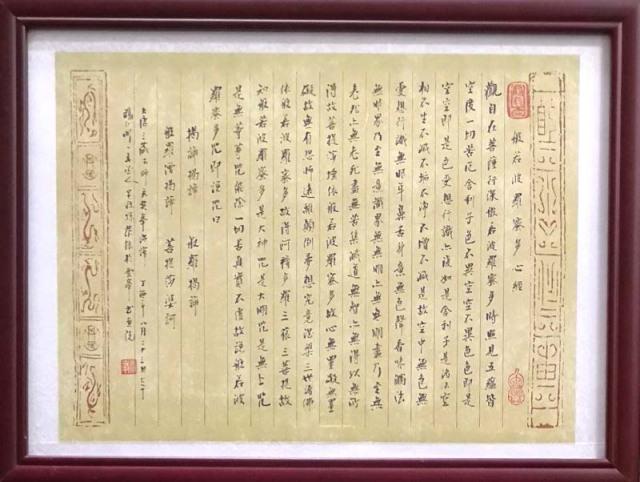 般若波羅蜜多心經
觀自在菩薩行深般若波羅蜜多時照見五蘊皆
空度一切苦厄舍利子色不異空空不異色色即是
空空即是色受想行識亦復如是舍利子是諸法空
相不生不滅不垢不淨不增不減是故空中無色無
受想行識無眼耳鼻舌身意無色聲香味觸法
無眼界乃至無意識界無無明亦無無明盡乃至無
老死亦無老死盡無苦集滅道無智亦無得以無所
得故菩提薩埵依般若波羅蜜多故心無罣礙無罣
礙故無有恐怖遠離顛倒夢想究竟涅槃三世諸佛
依般若波羅蜜多故得阿耨多羅三藐三菩提故
知般若波羅蜜多是大神咒是大明咒是無上咒
是無等等咒能除一切苦真實不虛故說般若波
羅蜜多咒即說咒曰
揭諦揭諦 般羅揭諦
般羅僧揭諦 菩提薩婆訶